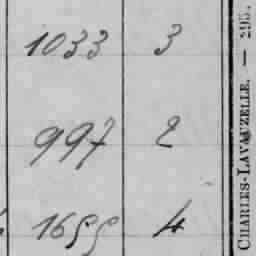 1033 3
997 2
1655 4
CHARLES-LAVAUZELLE. — 295.